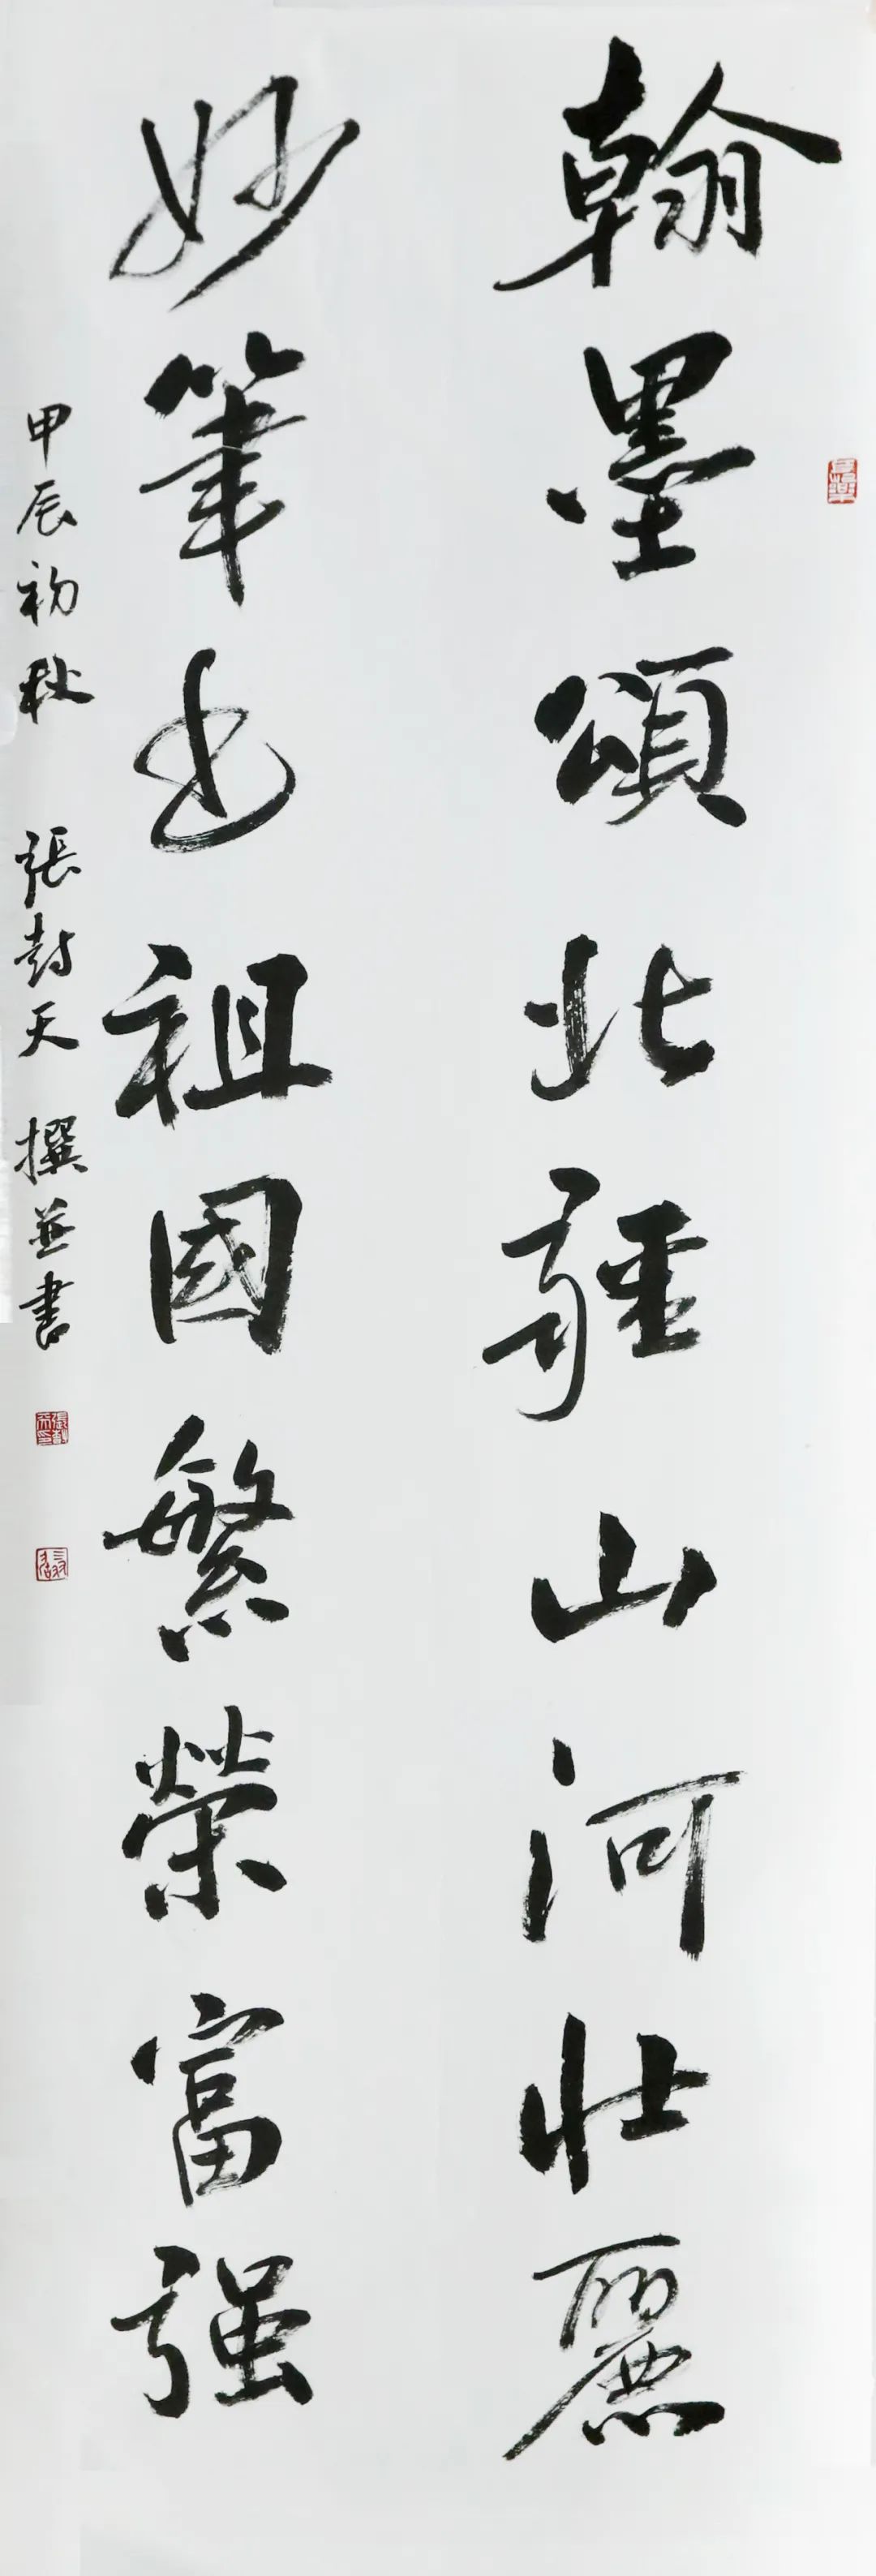 翰墨頌北疆山河壯麗
妙筆書祖國繁榮富强
甲辰初秋 張封天 撰並書